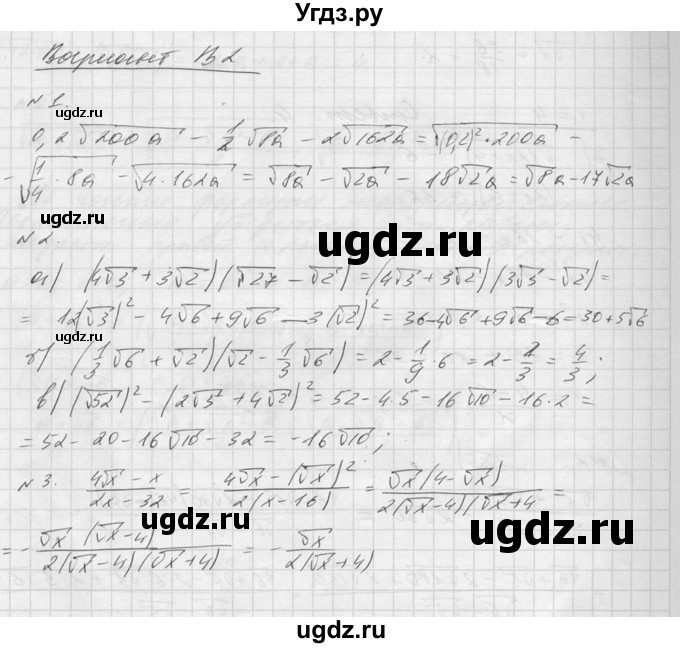 Угдз.ру
Вариант В2
N1.
0,2√200a - 1/2 √8a - 2√162a = √(0,2)²·200a -
- √1/4·8a - √4·162a = √8a - √2a - 18√2a = √8a - 17√2a
N2.
а) (4√3 + 3√2)(√27 - √2) = (4√3 + 3√2)(3√3 - √2) =
= 12(√3)² - 4√6 + 9√6 - 3(√2)² = 36 - 4√6 + 9√6 - 6 = 30 + 5√6
б) (1/3 √6 + √2)(√2 - 1/3 √6) = 2 - 1/9 · 6 = 2 - 2/3 = 4/3;
в) (√52)² - (2√5 + 4√2)² = 52 - 4·5 - 16√10 - 16·2 =
= 52 - 20 - 16√10 - 32 = -16√10;
N3. (4√x - x)/(2x - 32) = (4√x - (√x)²)/(2(x - 16)) = (√x(4 - √x))/(2(√x - 4)(√x + 4) =
= - (√x (√x - 4))/(2(√x - 4)(√x + 4)) = - √x/(2(√x + 4))
ugdz.ru
ugdz.ru
ugdz.ru
ugdz.ru
ugdz.ru
ugdz.ru
ugdz.ru
ugdz.ru